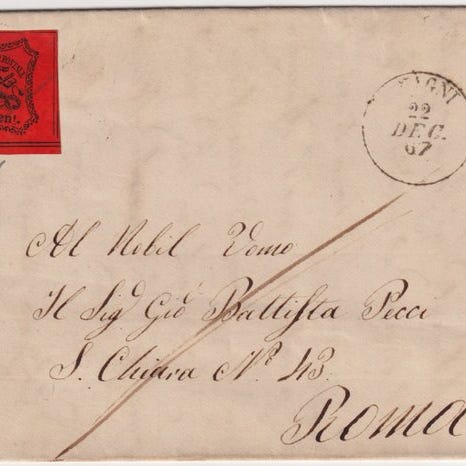 ent.
22
DEC.
67
Al Nobil Uomo
Il Sigr Gio Battista Pecci
S. Chiara Nr. 43.
Roma